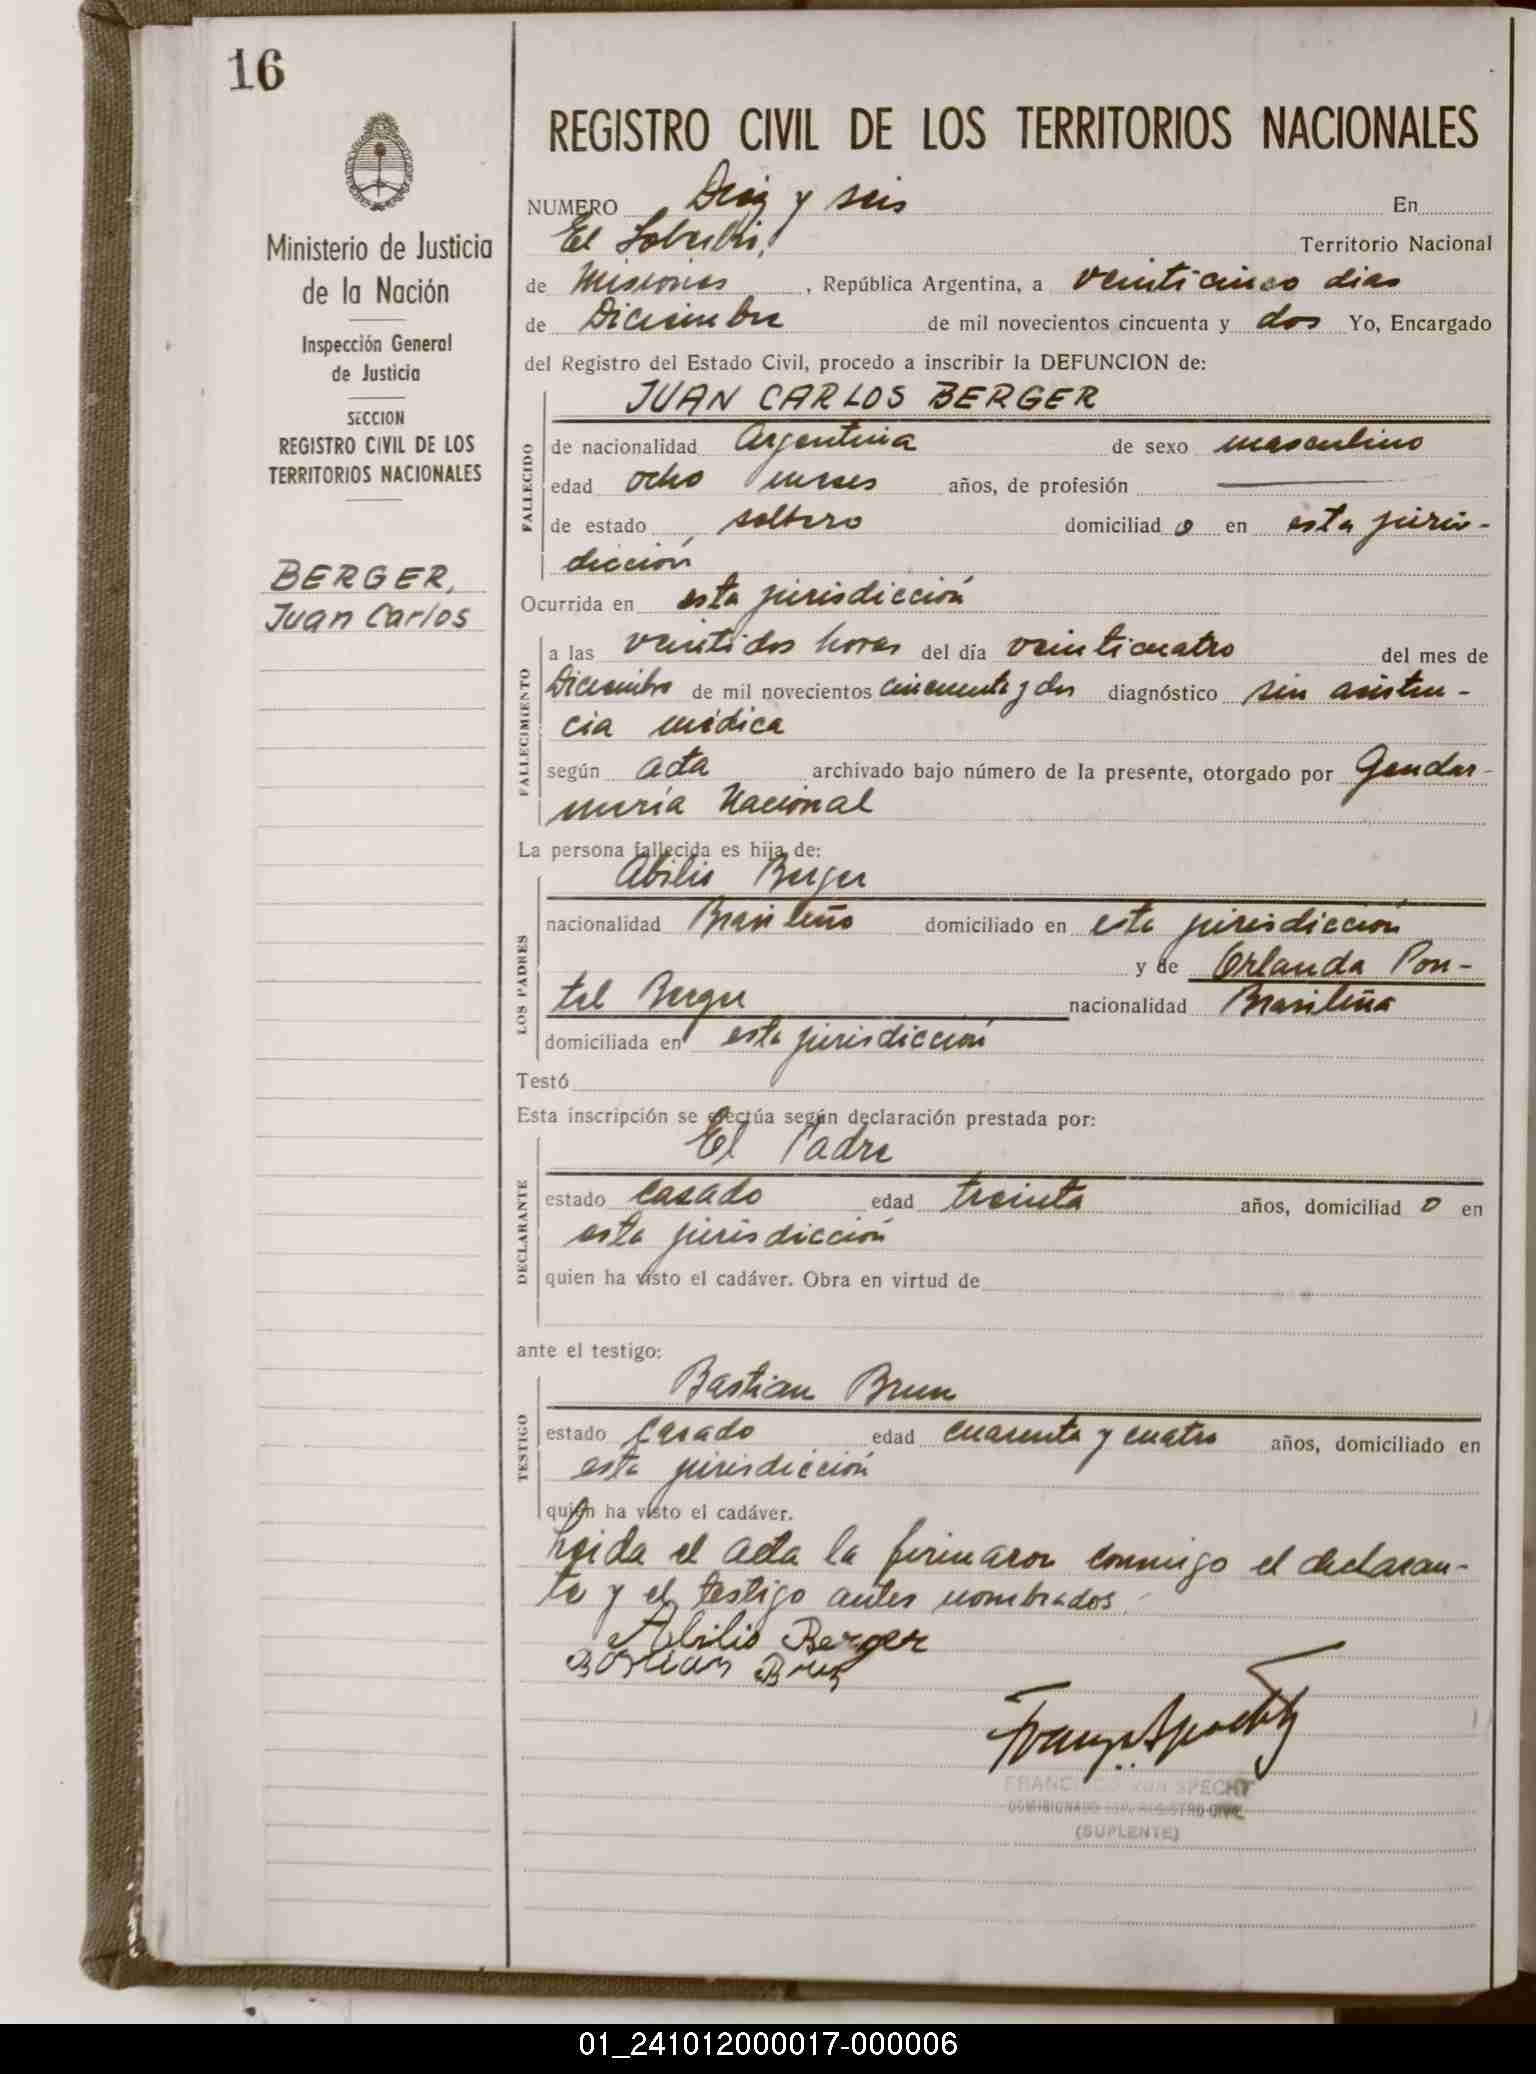 16
Ministerio de Justicia
de la Nación
Inspección General
de Justicia
SECCION
REGISTRO CIVIL DE LOS
TERRITORIOS NACIONALES
BERGER,
Juan Carlos
REGISTRO CIVIL DE LOS TERRITORIOS NACIONALES
NUMERO Diez y seis En
El Soberbio, Territorio Nacional
de Misiones, República Argentina, a veinticinco dias
de Diciembre de mil novecientos cincuenta y dos Yo, Encargado
del Registro del Estado Civil, procedo a inscribir la DEFUNCION de:
JUAN CARLOS BERGER
FALLECIDO
de nacionalidad Argentina de sexo masculino
edad ocho meses años, de profesión —
de estado soltero domiciliad o en esta juris-
dicción
Ocurrida en esta jurisdicción
FALLECIMIENTO
a las veintidos horas del día veinticuatro del mes de
Diciembre de mil novecientos cincuenta y dos diagnóstico sin asisten-
cia médica
según acta archivado bajo número de la presente, otorgado por Gendar-
mería Nacional
La persona fallecida es hija de:
Abilio Berger
LOS PADRES
nacionalidad Brasileño domiciliado en esta jurisdicción
y de Orlanda Pon-
tel Berger nacionalidad Brasileña
domiciliada en esta jurisdicción
Testó
Esta inscripción se efectúa según declaración prestada por:
El Padre
DECLARANTE
estado casado edad treinta años, domiciliad o en
esta jurisdicción
quien ha visto el cadáver. Obra en virtud de
ante el testigo:
Bastian Brun
TESTIGO
estado casado edad cuarenta y cuatro años, domiciliado en
esta jurisdicción
quien ha visto el cadáver.
Leida el acta la firmaron conmigo el declaran-
te y el testigo antes nombrados.
Abilio Berger
Bastian Brun
FRANCISCO von SPECHT
REGISTRO CIVIL
(SUPLENTE)
01_241012000017-000006